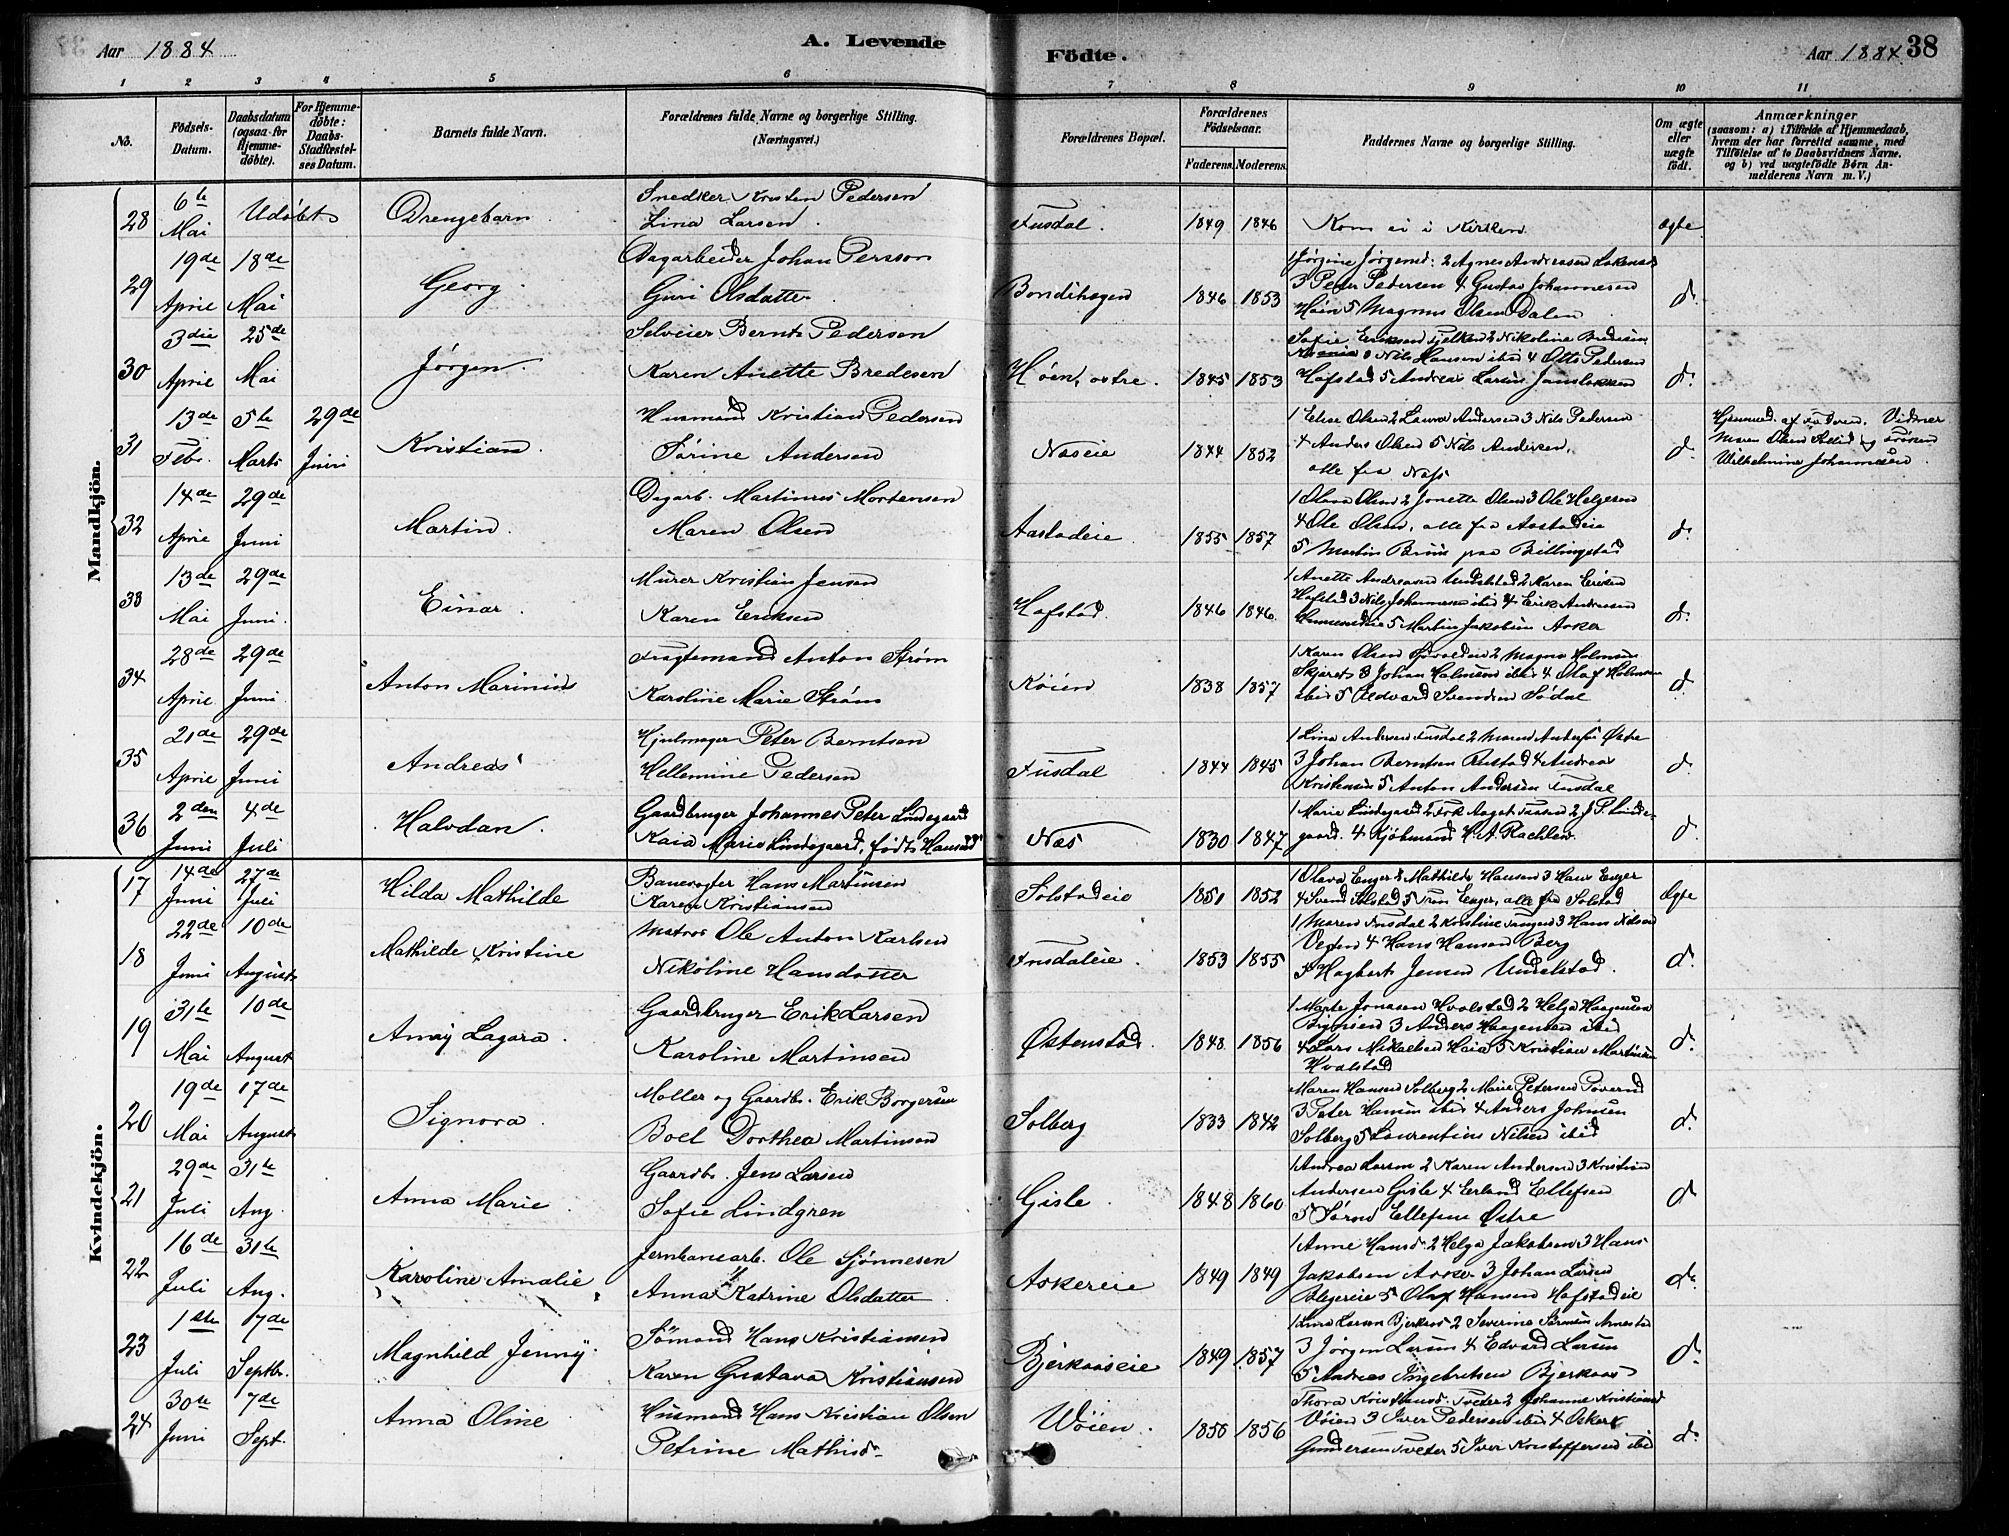 Aar 1884
A. Levende
Födte.
Aar 1884.
38
1 2 3 4 5 6 7 8 9 10 11
No.
Födsels-Datum.
Daabsdatum (ogsaa for Hjemme-döbte).
For Hjemme-döbte: Daabs-Stadfæstel-ses Datum.
Barnets fulde Navn.
Forældrenes fulde Navne og borgerlige Stilling. (Næringsvei.)
Forældrenes Bopæl.
Forældrenes Födselsaar.
Faderens. Moderens.
Faddernes Navne og borgerlige Stilling.
Om ægte eller uægte födt.
Anmærkninger
(saasom: a) i Tilfælde af Hjemmedaab, hvem der har forrettet samme, med Tilföielse af to Daabsvidners Navne. og b) ved uægtefödte Börn An-melderens Navn m. V.)
Mandkjön.
28 6te Mai Udøbt Drengebarn
Snedker Kristen Pedersen
Lina Larsen
Fusdal. 1849 1846 Kom ei i Kirken ægte
29 19de April 18de Mai Georg.
Dagarbeider Johan Persson
Guri Olsdatter
Bondihagen 1846 1853
3 Peter Pedersen 4 Gustav Johannesen
Høin 5 Magnus Olsen Dalen
d.
30 3die April 25de Mai Jørgen.
Selveier Bernt Pedersen
Karen Anette Bredesen
Høen, østre. 1845 1853
3 Nils Hansen ibid 4 Otto Pedersen
Hofstad 5 Andreas Larsen
d.
31 13de Febr. 5te Marts 29de Juni Kristian.
Husmand Kristian Pedersen
Sørine Andersen
Næseie 1844 1852
1 Elise Olsen 2 Laura Andersen 3 Nils Pedersen
4 Anders Olsen 5 Nils Andersen,
alle fra Næss
d.
Hjemmed. af Faderen. Vidner
Maren Olsen og Frøken
Wilhelmine Johannesen
32 14de April 29de Juni Martin.
Dagarb. Martinus Mortensen
Maren Olsen
Aastadeie 1855 1857
1 Olava Olsen 2 Jonette Olsen 3 Ole Helgesen
4 Ole Olsen, alle fra Aastadeie
5 Martin Bruun paa Billingstad
d.
33 13de Mai 29de Juni. Einar.
Murer Kristian Jensen
Karen Eriksen
Hofstad 1846 1846
1 Anette Andreasen Undelstad 2 Karen Eriksen
Hofstad 3 Nils Johannesen ibid 4 Erik Andresen
5 Martin Jakobsen Asker
d.
34 28de April 29de Juni. Anton Marinius
Fragtemand Anton Strøm
Karoline Marie Strøm
Køien 1838 1857
1 Karen Olsen 2 Magna Holmsen
Skjæret 3 Johan Holmsen ibid 4 Olaf Holmsen
ibid 5 Edvard Svendsen Sødal
d.
35 21de April 29de Juni Andreas
Hjulmager Peter Berntsen
Hellemine Pedersen
Fusdal 1844 1845
1 Lina Andersen Fusdal 2 Maren Østre
3 Johan Berntsen Rustad 4 Andrea
Kristensen 5 Anton Andersen Fusdal
d.
36 2den Juni 4de Juli Halvdan.
Gaardbruger Johannes Peter Lindegaard
Kaia Marie Lindegaard, født Hansen
Næs 1830 1847
1 Marie Lindegaard J. P. Linde-
gaard. 4 Kjøbmand H. A.
d.
Kvindekjön.
17 14de Juni 27de Juli Hilda Mathilde
Banevogter Hans Martinsen
Karen Kristiansen
Solstadeie 1851 1852
1 Olava Enger 2 Mathilde Hansen 3 Hans Enger
4 Svend Solstad 5 Enger, alle fra Solstad
ægte
18 22de Juni 10de August Mathilde Kristine
Matros Ole Anton Karlsen
Nikoline Hansdatter
Fusdaleie. 1853 1855
1 Maren Fusdal 2 Kristine 3 Hans Nilsen
4 Hans Hansen Berg
5 Hagbert Jensen Undelstad.
d.
19 31te Mai 10de August Anny Lagora.
Gaardbruger Erik Larsen
Karoline Martinsen
Østenstad. 1848 1856
1 Marte Jonasen Hvalstad 2 Helga Haagensen
3 Anders Haagensen ibid
4 Lars Mikaelsen Haia 5 Kristian Martinsen
Hvalstad
d.
20 19de Mai 17de August Signora.
Møller og Gaardb. Erik Borgersen
Boel Dorthea Martinsen
Solberg 1833 1842
Maren Hansen Solberg 2 Marie Petersen
3 Peter Hansen ibid 4 Anders Johnsen
Solberg 5 Laurentius Nilsen ibid
d.
21 29de Juli 31te Aug. Anna Marie
Gaardb. Jens Larsen
Sofie Lindgren
Gisle. 1848 1860
1 Andrea Larsen 2 Karen Andersen 3 Kristian
Andersen Gisle 4 Erland Ellefsen
5 Søren Ellefsen Østre
d
22 16de Juli 31te Aug. Karoline Amalie
Jernbanearb. Ole Sjønnesen
Anna Katrine Olsdatter
Askereie 1849 1849
1 Anne Hansd. 2 Helga Jakobsen 3 Hans
Jakobsen Asker 3 Johan Larsen
5 Olaf Hansen Hofstadeie
d.
23 1ste Juli 7de Septbr. Magnhild Jenny
Sømand Hans Kristiansen
Karen Gustava Kristiansen
Bjerkaaseie 1849 1857
1 Lina Larsen Bjerkaas 2 Severine Arnestad
3 Jørgen Larsen 4 Edvard Larsen
5 Andreas Ingebretsen Bjerkaas
d.
24 30te Juni 7de Sept. Anna Oline
Husmand Hans Kristian Olsen
Petrine Mathisd.
Wøien. 1856 1856
Thora Kristiansd. Tveter 2 Johanne Kristiansd
Vøien 3 Iver Pedersen ibid 4 Oskar
Gundersen Tveter 5 Iver Kristoffersen ibid
d.